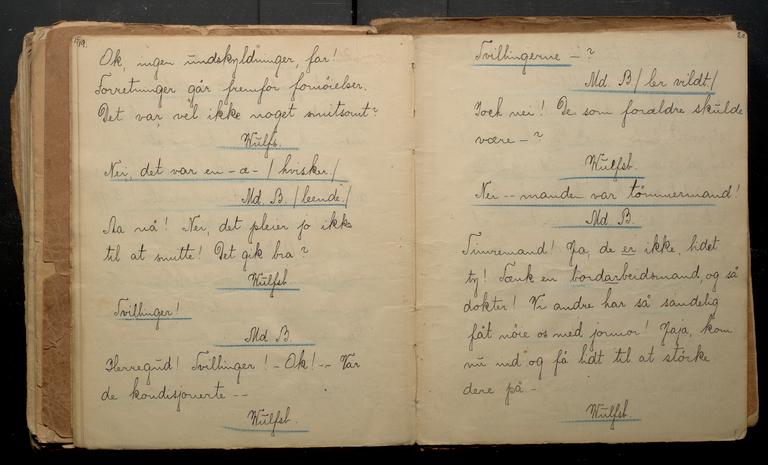 19.
Ok, ingen undskyldninger, far!
Forretninger går fremfor fornøielser.
Det var vel ikke noget smitsomt?
Wulfs.
Nei, det var en - æ - / hvisker /
Md. B. / leende /
Aa nå! Nei, det pleier jo ikke
til at smitte! Det gik bra?
Wulfsb.
Tvillinger!
Md. B.
Herregud! Tvillinger! - Ok! -- Var
de kondisjonerte --
Wulfsb.
20.
Tvillingerne - ?
Md. B / ler vildt /
Iock nei! De som forældre skulde
være - ?
Wulfsb.
Nei -- manden var tömmermand!
Md. B.
Timremand! Ja, de er ikke lidet
ty! Tænk en bordarbeidsmand, og så
dokter! Vi andre har så sandelig
fåt nöie os med jormor! Jaja, kom
nu ind og få lidt til at störke
dere på -
Wulfsb.